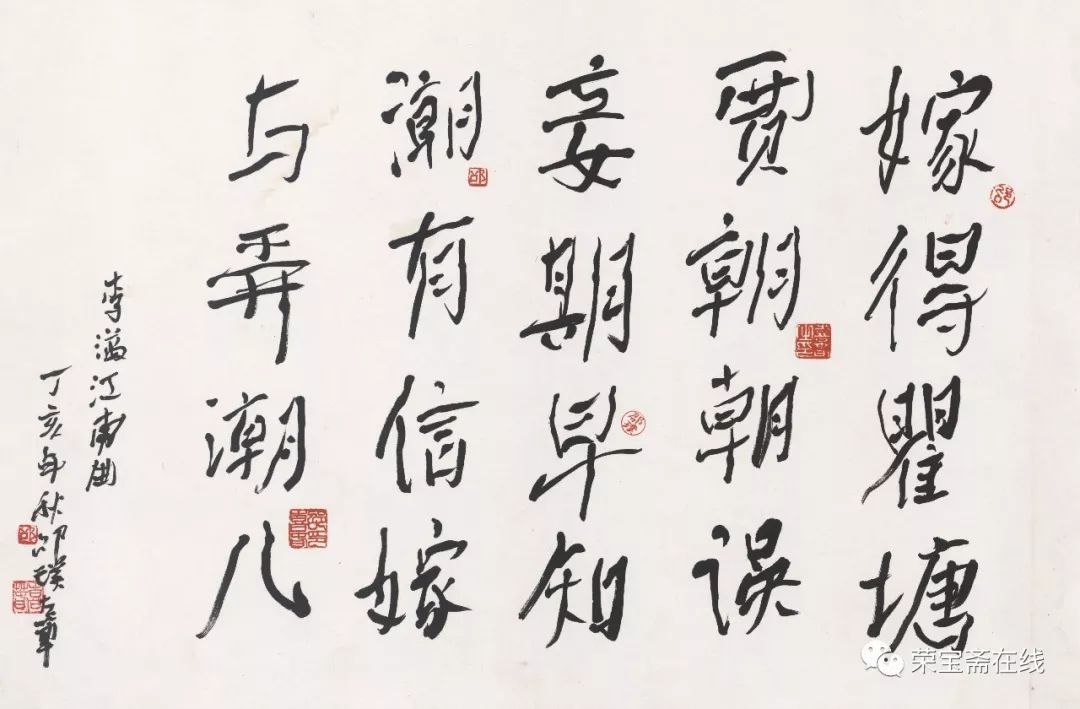 嫁得瞿塘
贾朝朝误
妾期早知
潮有信嫁
与弄潮儿
李溢江南曲
丁亥年秋邵璞
荣宝斋在线